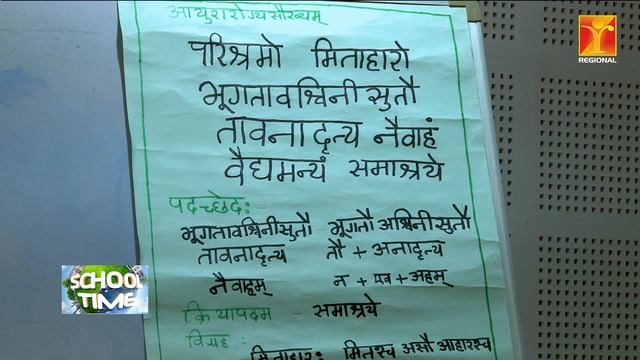 आयुरारोग्यसौख्यम्
परिश्रमो मिताहारो
भूगतावश्विनीसुतौ
तावनादृत्य नैवाहं
वैद्यमन्यं समाश्रये
पदच्छेदः
भूगतावश्विनीसुतौ भूगतौ अश्विनीसुतौ
तावनादृत्य तौ + अनादृत्य
नैवाहम् न + एव + अहम्
क्रियापदम् - समाश्रये
विग्रहः
मिताहारः मितश्च असौ आहारश्च
REGIONAL
SCHOOL
TIME